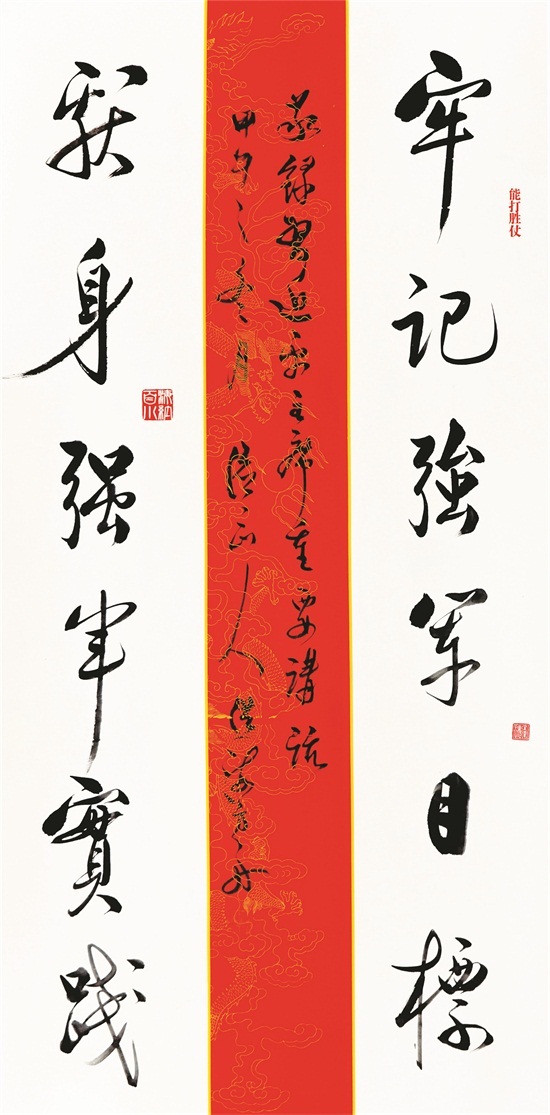 牢记強军目標
能打胜仗
敬録習近平主席重要講話
甲午之冬月
獻身强军實践